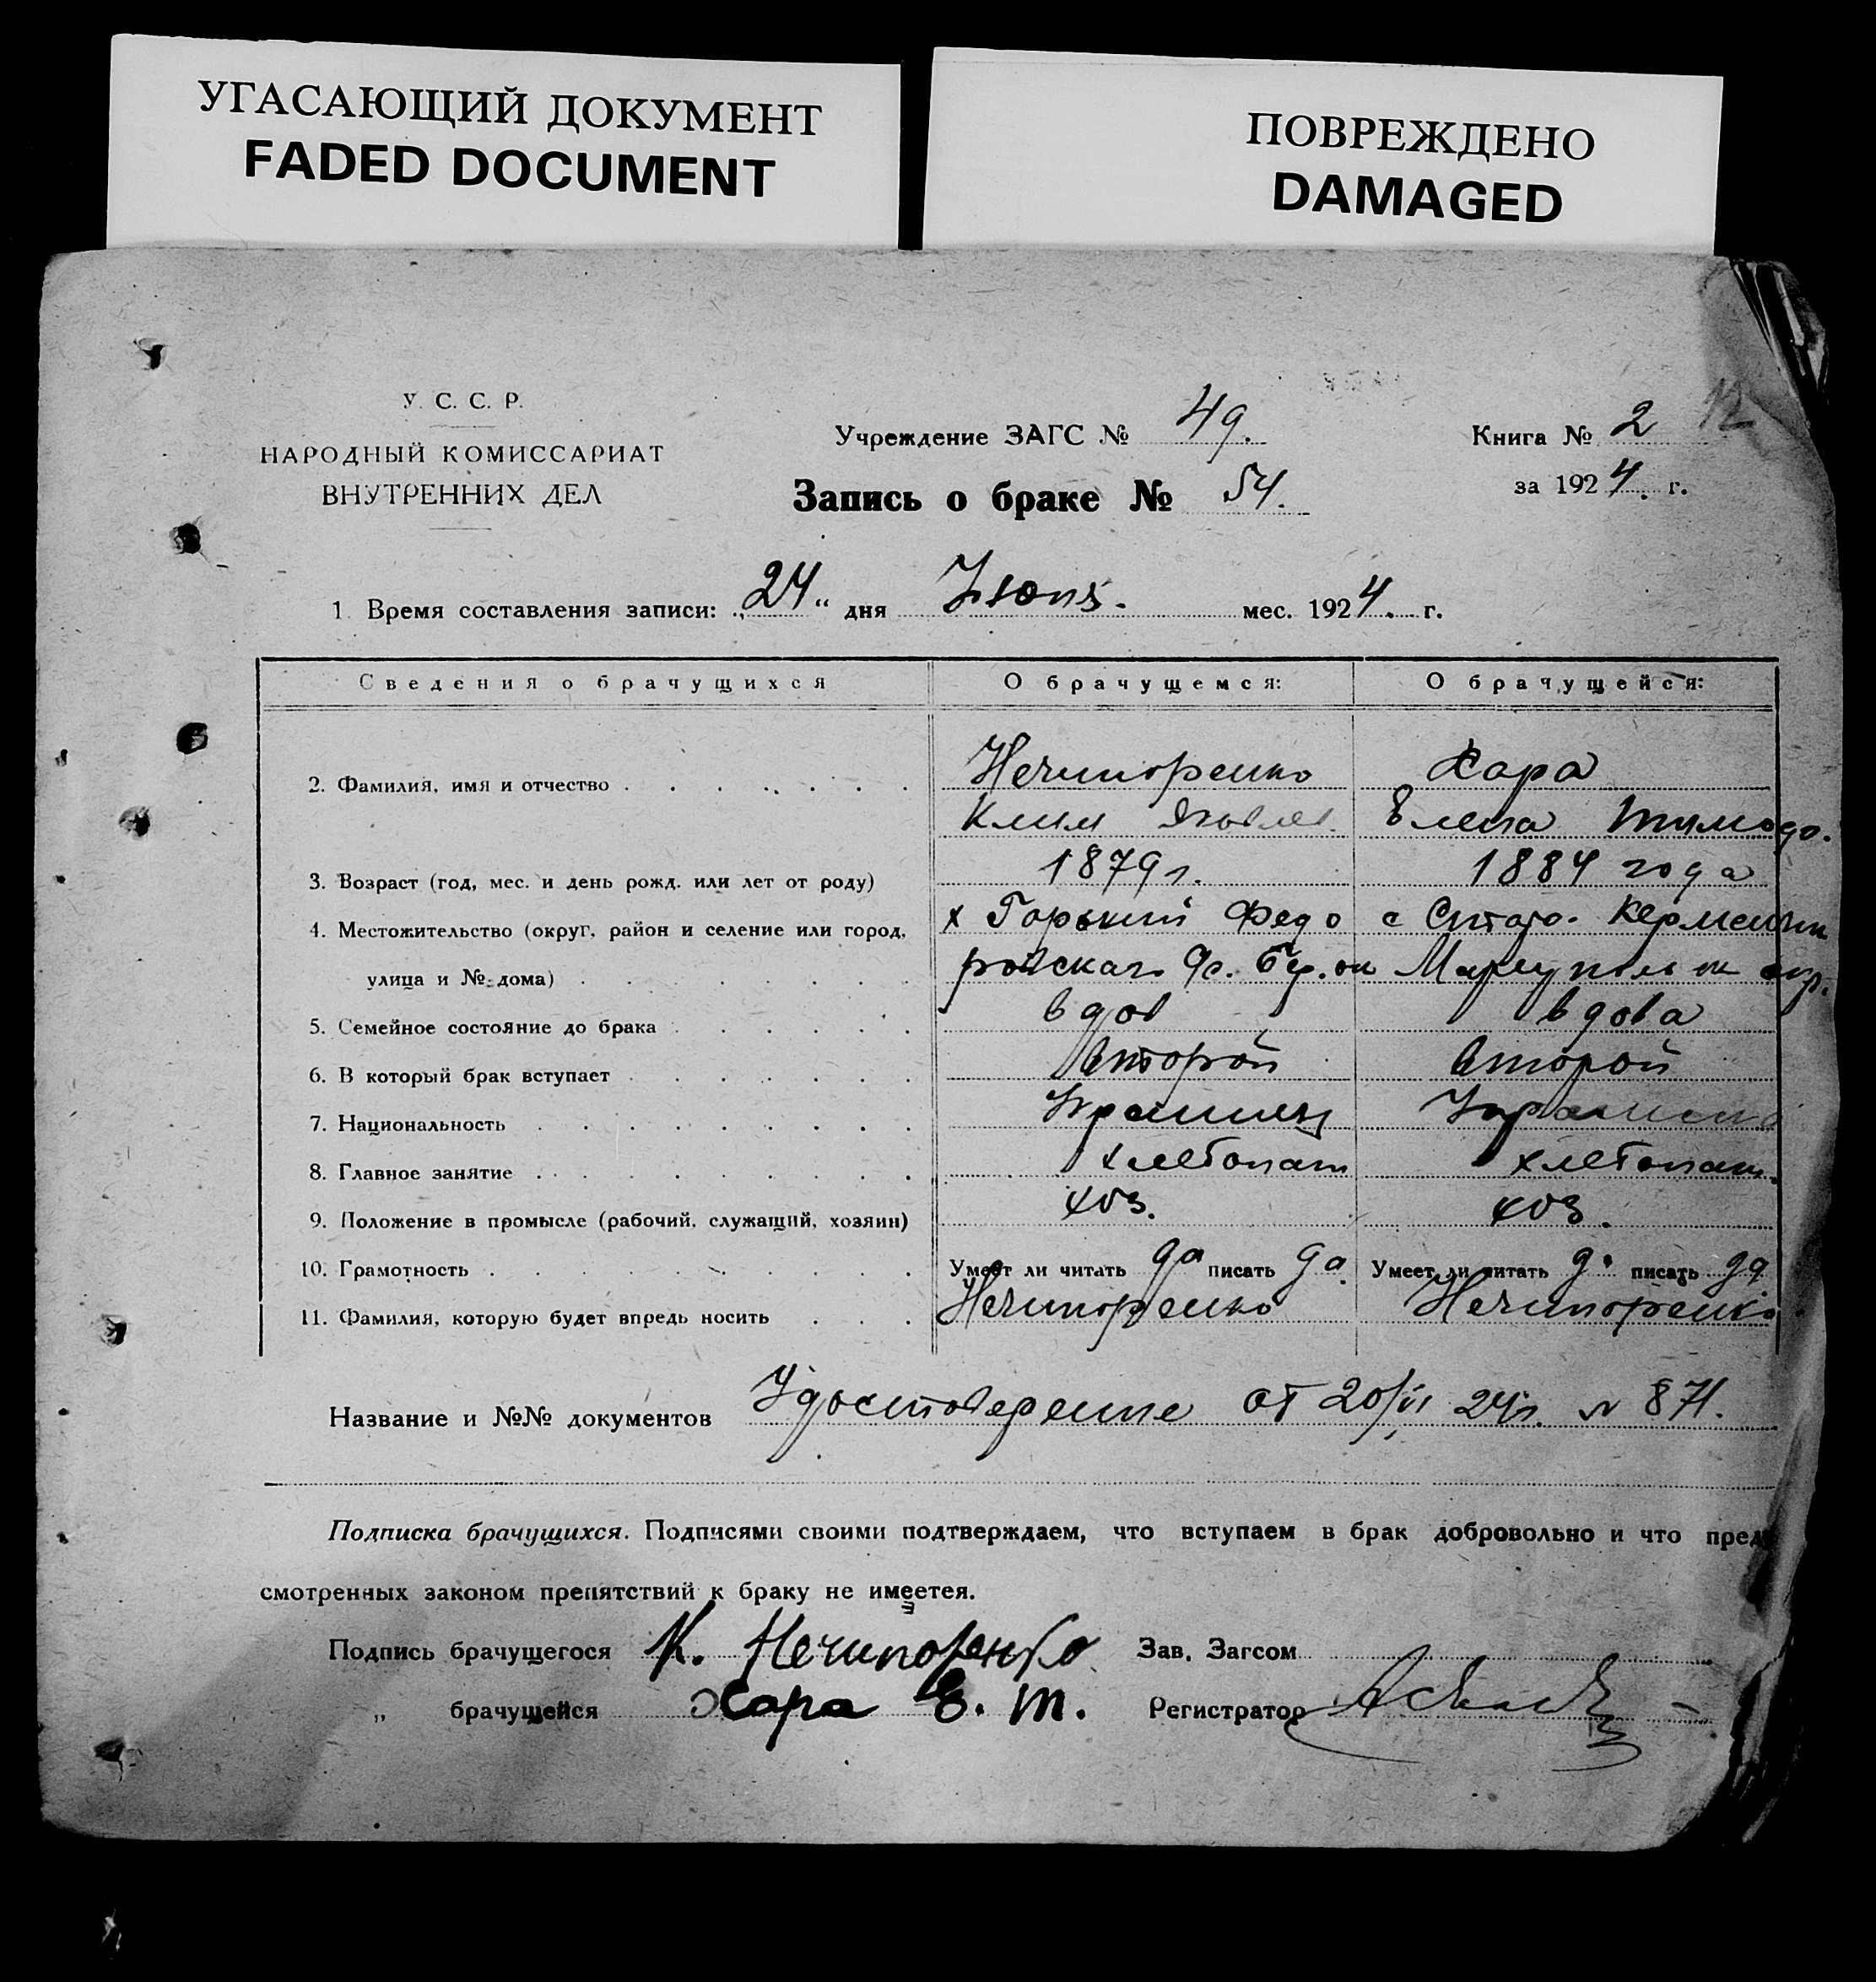 УГАСАЮЩИЙ ДОКУМЕНТ
FADED DOCUMENT
ПОВРЕЖДЕНО
DAMAGED
У. С. С. Р.
НАРОДНЫЙ КОМИССАРИАТ
ВНУТРЕННИХ ДЕЛ
Учреждение ЗАГС № 49.
Книга № 2 12
Запись о браке № 54.
за 1924. г.
1. Время составления записи: „24“ дня Июня. мес. 1924. г.
Сведения о брачущихся О брачущемся: О брачущейся:
2. Фамилия, имя и отчество Нечипоренко Хара
Клим Яковлев. Елена Тимофо.
3. Возраст (год, мес. и день рожд. или лет от роду) 1879 г. 1884 года
4. Местожительство (округ, район и селение или город, х Горький Федо с Старо-Керменчик
улица и № дома) ровской Мариуполь ок
5. Семейное состояние до брака вдов вдова
6. В который брак вступает второй второй
7. Национальность Украинец Украинка
8. Главное занятие хлебопаш хлебопаш.
9. Положение в промысле (рабочий, служащий, хозяин) хоз. хоз.
10. Грамотность Умеет ли читать да писать да. Умеет ли читать да писать да
11. Фамилия, которую будет впредь носить Нечипоренко Нечипоренко.
Название и №№ документов Удостоверение от 20/VI 24 г. № 871.
Подписка брачущихся. Подписями своими подтверждаем, что вступаем в брак добровольно и что пред
смотренных законом препятствий к браку не имеется.
Подпись брачущегося К. Нечипоренко Зав. Загсом
„ брачущейся Хара Е. Т. Регистратор